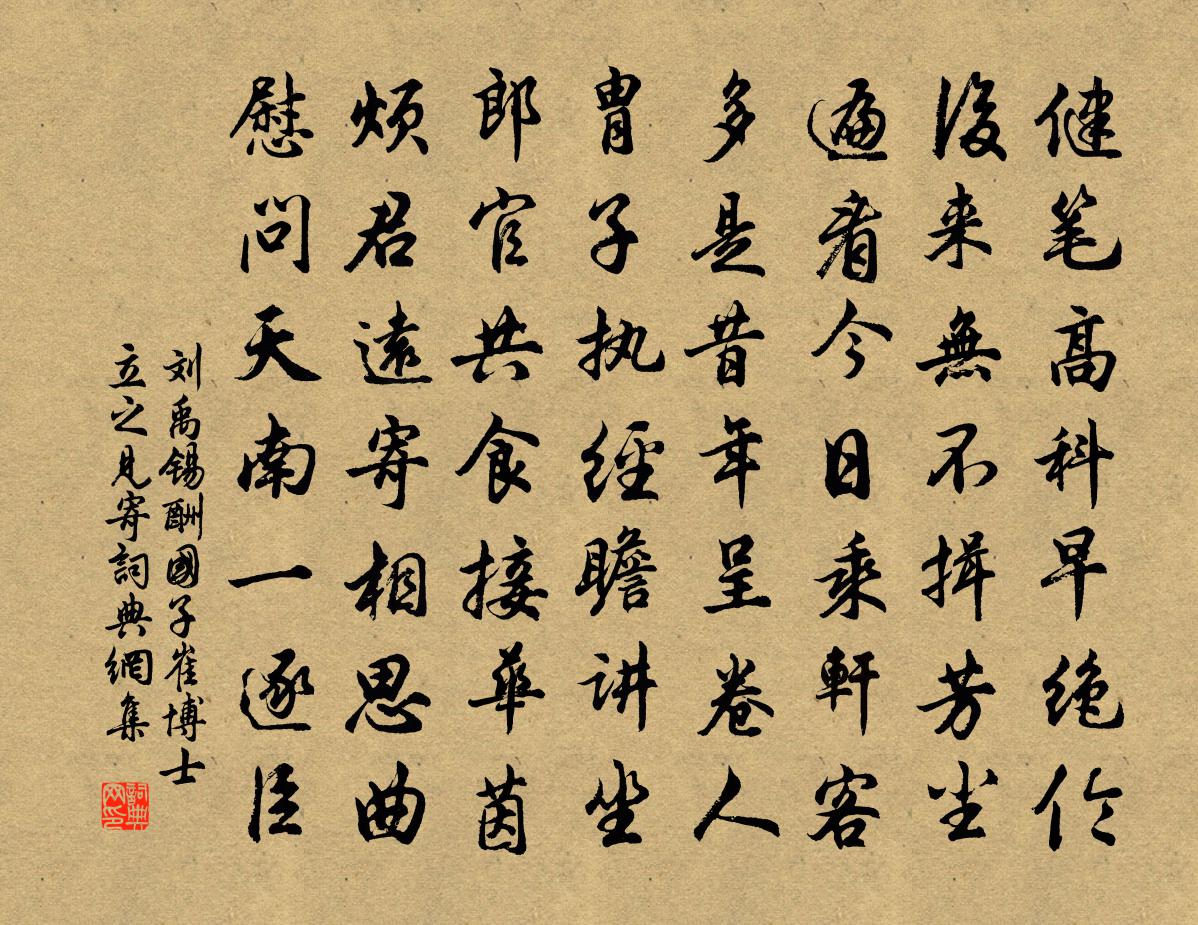 健笔高科早绝伦
後来無不揖芳尘
遍看今日乘軒客
多是昔年呈卷人
胄子执經瞻讲坐
郎官共食接華茵
烦君遠寄相思曲
慰问天南一逐臣
刘禹锡酬國子崔博士
立之见寄詞典網集
詞典
网印